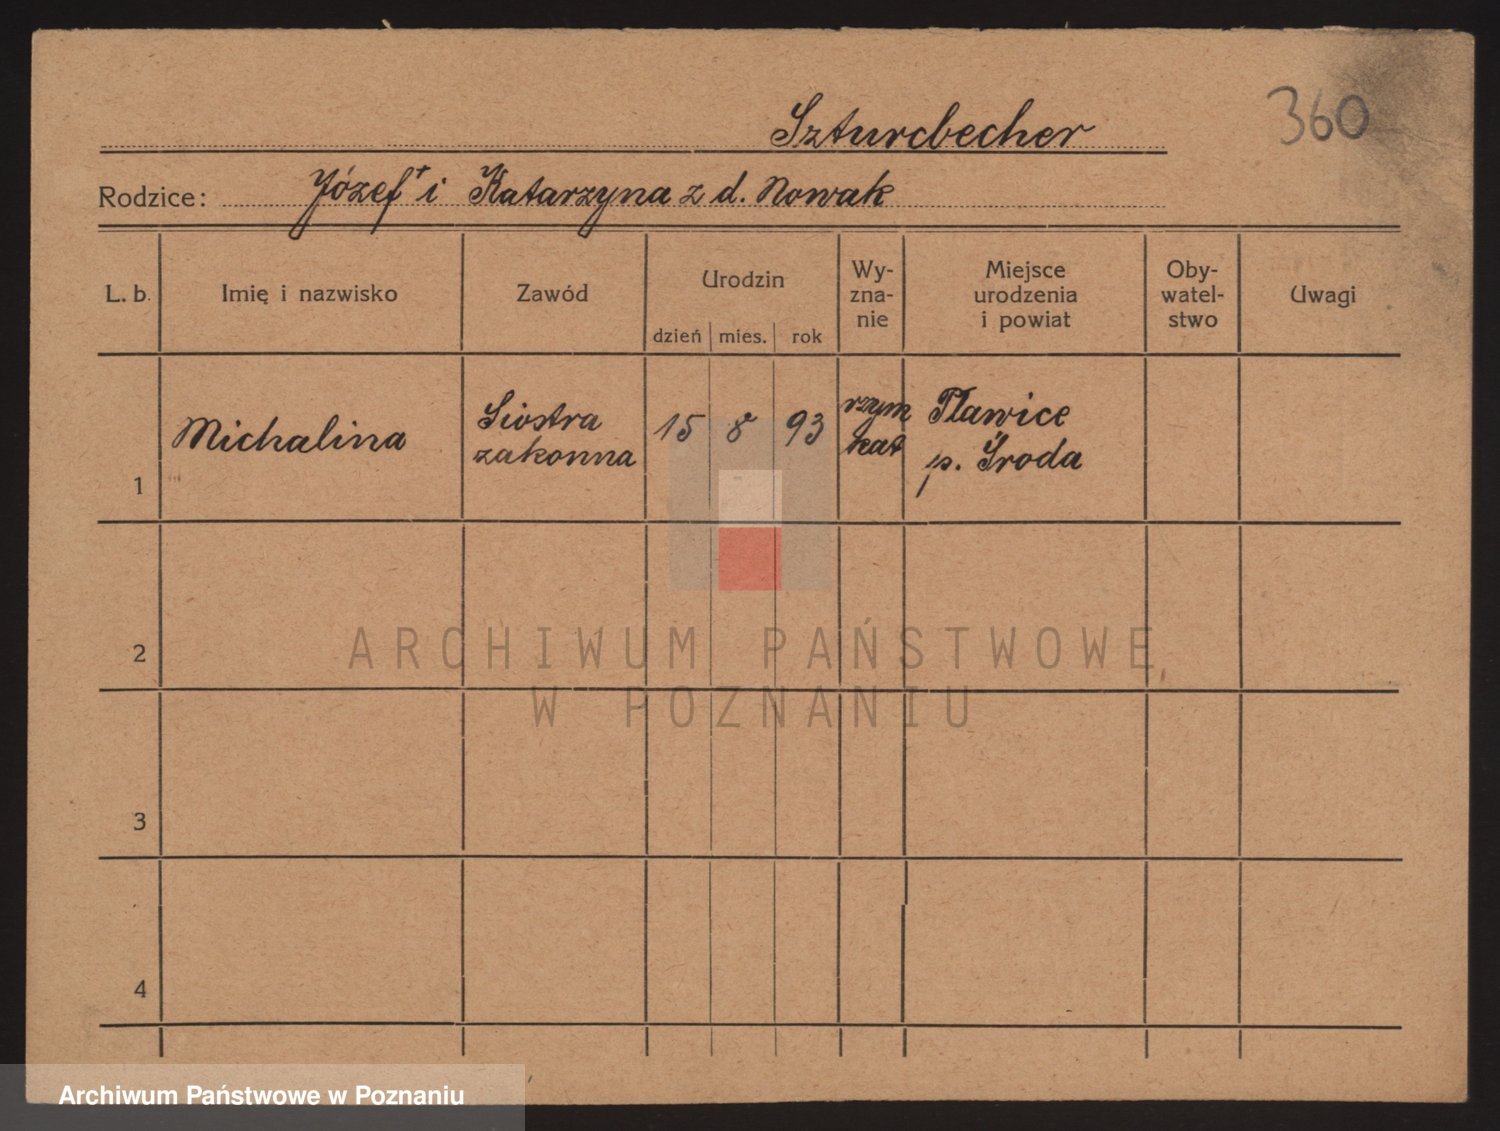 Szturcbecher
360
Rodzice: Józef + i Katarzyna z d. Nowak
L. b. Imię i nazwisko Zawód Urodzin dzień mies. rok Wy-zna-nie Miejsce urodzenia i powiat Oby-watel-stwo Uwagi
1 Michalina Siostra zakonna 15 8 93 rzym kat Pławice p. Środa
2
3
4
ARCHIWUM PAŃSTWOWE
W POZNANIU
Archiwum Państwowe w Poznaniu